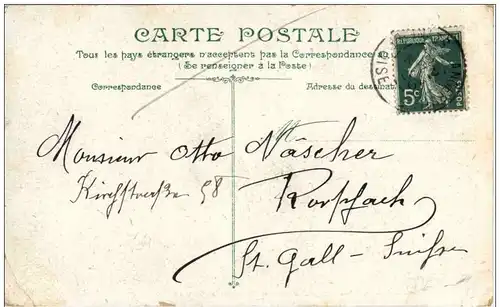 CARTE POSTALE
Tous les pays étrangers n'acceptent pas la Correspondance au
(Se renseigner à la Poste)
Correspondance
Adresse du destinat
RÉPUBLIQUE FRANÇAISE
5c
POSTES
OISE
Monsieur Otto Näscher
Kirchstraße 58
Rorschach
St. Gall - Suisse